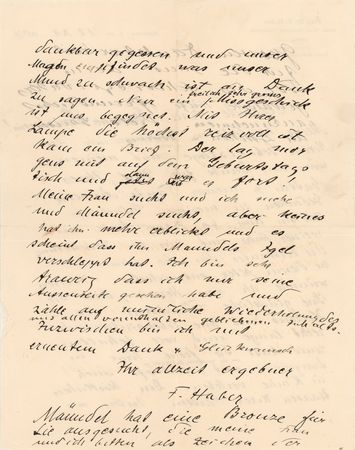 dankbar gegessen und unser
Magen empfindet was unser
Mund zu schwach ist als Dank
zu sagen. Nur ein Missgeschick
freilich sehr
ist uns begegnet. Mit Ihrer
Lampe die höchst reizvoll ist
kam ein Brief. Der lag mor
gens mit auf dem Geburtstags
tisch und dann war es fort.
Meine Frau sucht und ich suche
und Männdel sucht, aber keiner
hat ihn mehr erblickt und es
scheint dass ihn Männdels Igel
verschleppt hat. Ich bin sehr
traurig dass ich nur seine
Aussenseite gesehen habe und
zähle auf mündliche Wiederholung des
uns allen vorenthaltenen gebliebenen Inhalts.
Inzwischen bin ich mit
erneutem Dank & Glückwunsch
Ihr allzeit ergebner
F. Haber
Männdel hat eine Bronze für
Sie ausgesucht, die meine Frau
und ich bitten als Zeichen der